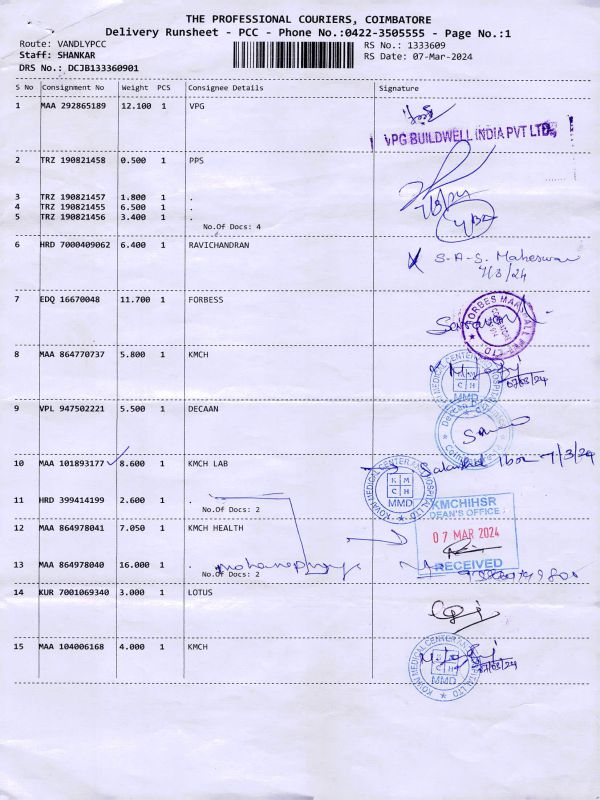 THE PROFESSIONAL COURIERS, COIMBATORE
Delivery Runsheet - PCC - Phone No.:0422-3505555 - Page No.:1
Route: VANDLYPCC RS No.: 1333609
Staff: SHANKAR RS Date: 07-Mar-2024
DRS No.: DCJB133360901
S No Consignment No Weight PCS Consignee Details Signature
1 MAA 292865189 12.100 1 VPG
VPG BUILDWELL INDIA PVT LTD.
2 TRZ 190821458 0.500 1 PPS
3 TRZ 190821457 1.800 1 .
4 TRZ 190821455 6.500 1 .
5 TRZ 190821456 3.400 1 .
No.Of Docs: 4
6 HRD 7000409062 6.400 1 RAVICHANDRAN
S.A.S. Maheswari
7/3/24
7 EDQ 16670048 11.700 1 FORBESS
8 MAA 864770737 5.800 1 KMCH
KOVAI MEDICAL CENTER AND HOSPITAL LTD
KMCH
MMD
07/03/24
9 VPL 947502221 5.500 1 DECAAN
10 MAA 101893177 8.600 1 KMCH LAB
7/3/24
KOVAI MEDICAL CENTER AND HOSPITAL LTD
KMCH
MMD
11 HRD 399414199 2.600 1 .
No.Of Docs: 2
KMCHIHSR
DEAN'S OFFICE
07 MAR 2024
RECEIVED
12 MAA 864978041 7.050 1 KMCH HEALTH
13 MAA 864978040 16.000 1 .
No.Of Docs: 2
14 KUR 7001069340 3.000 1 LOTUS
15 MAA 104006168 4.000 1 KMCH
KOVAI MEDICAL CENTER AND HOSPITAL LTD
MMD
07/03/24